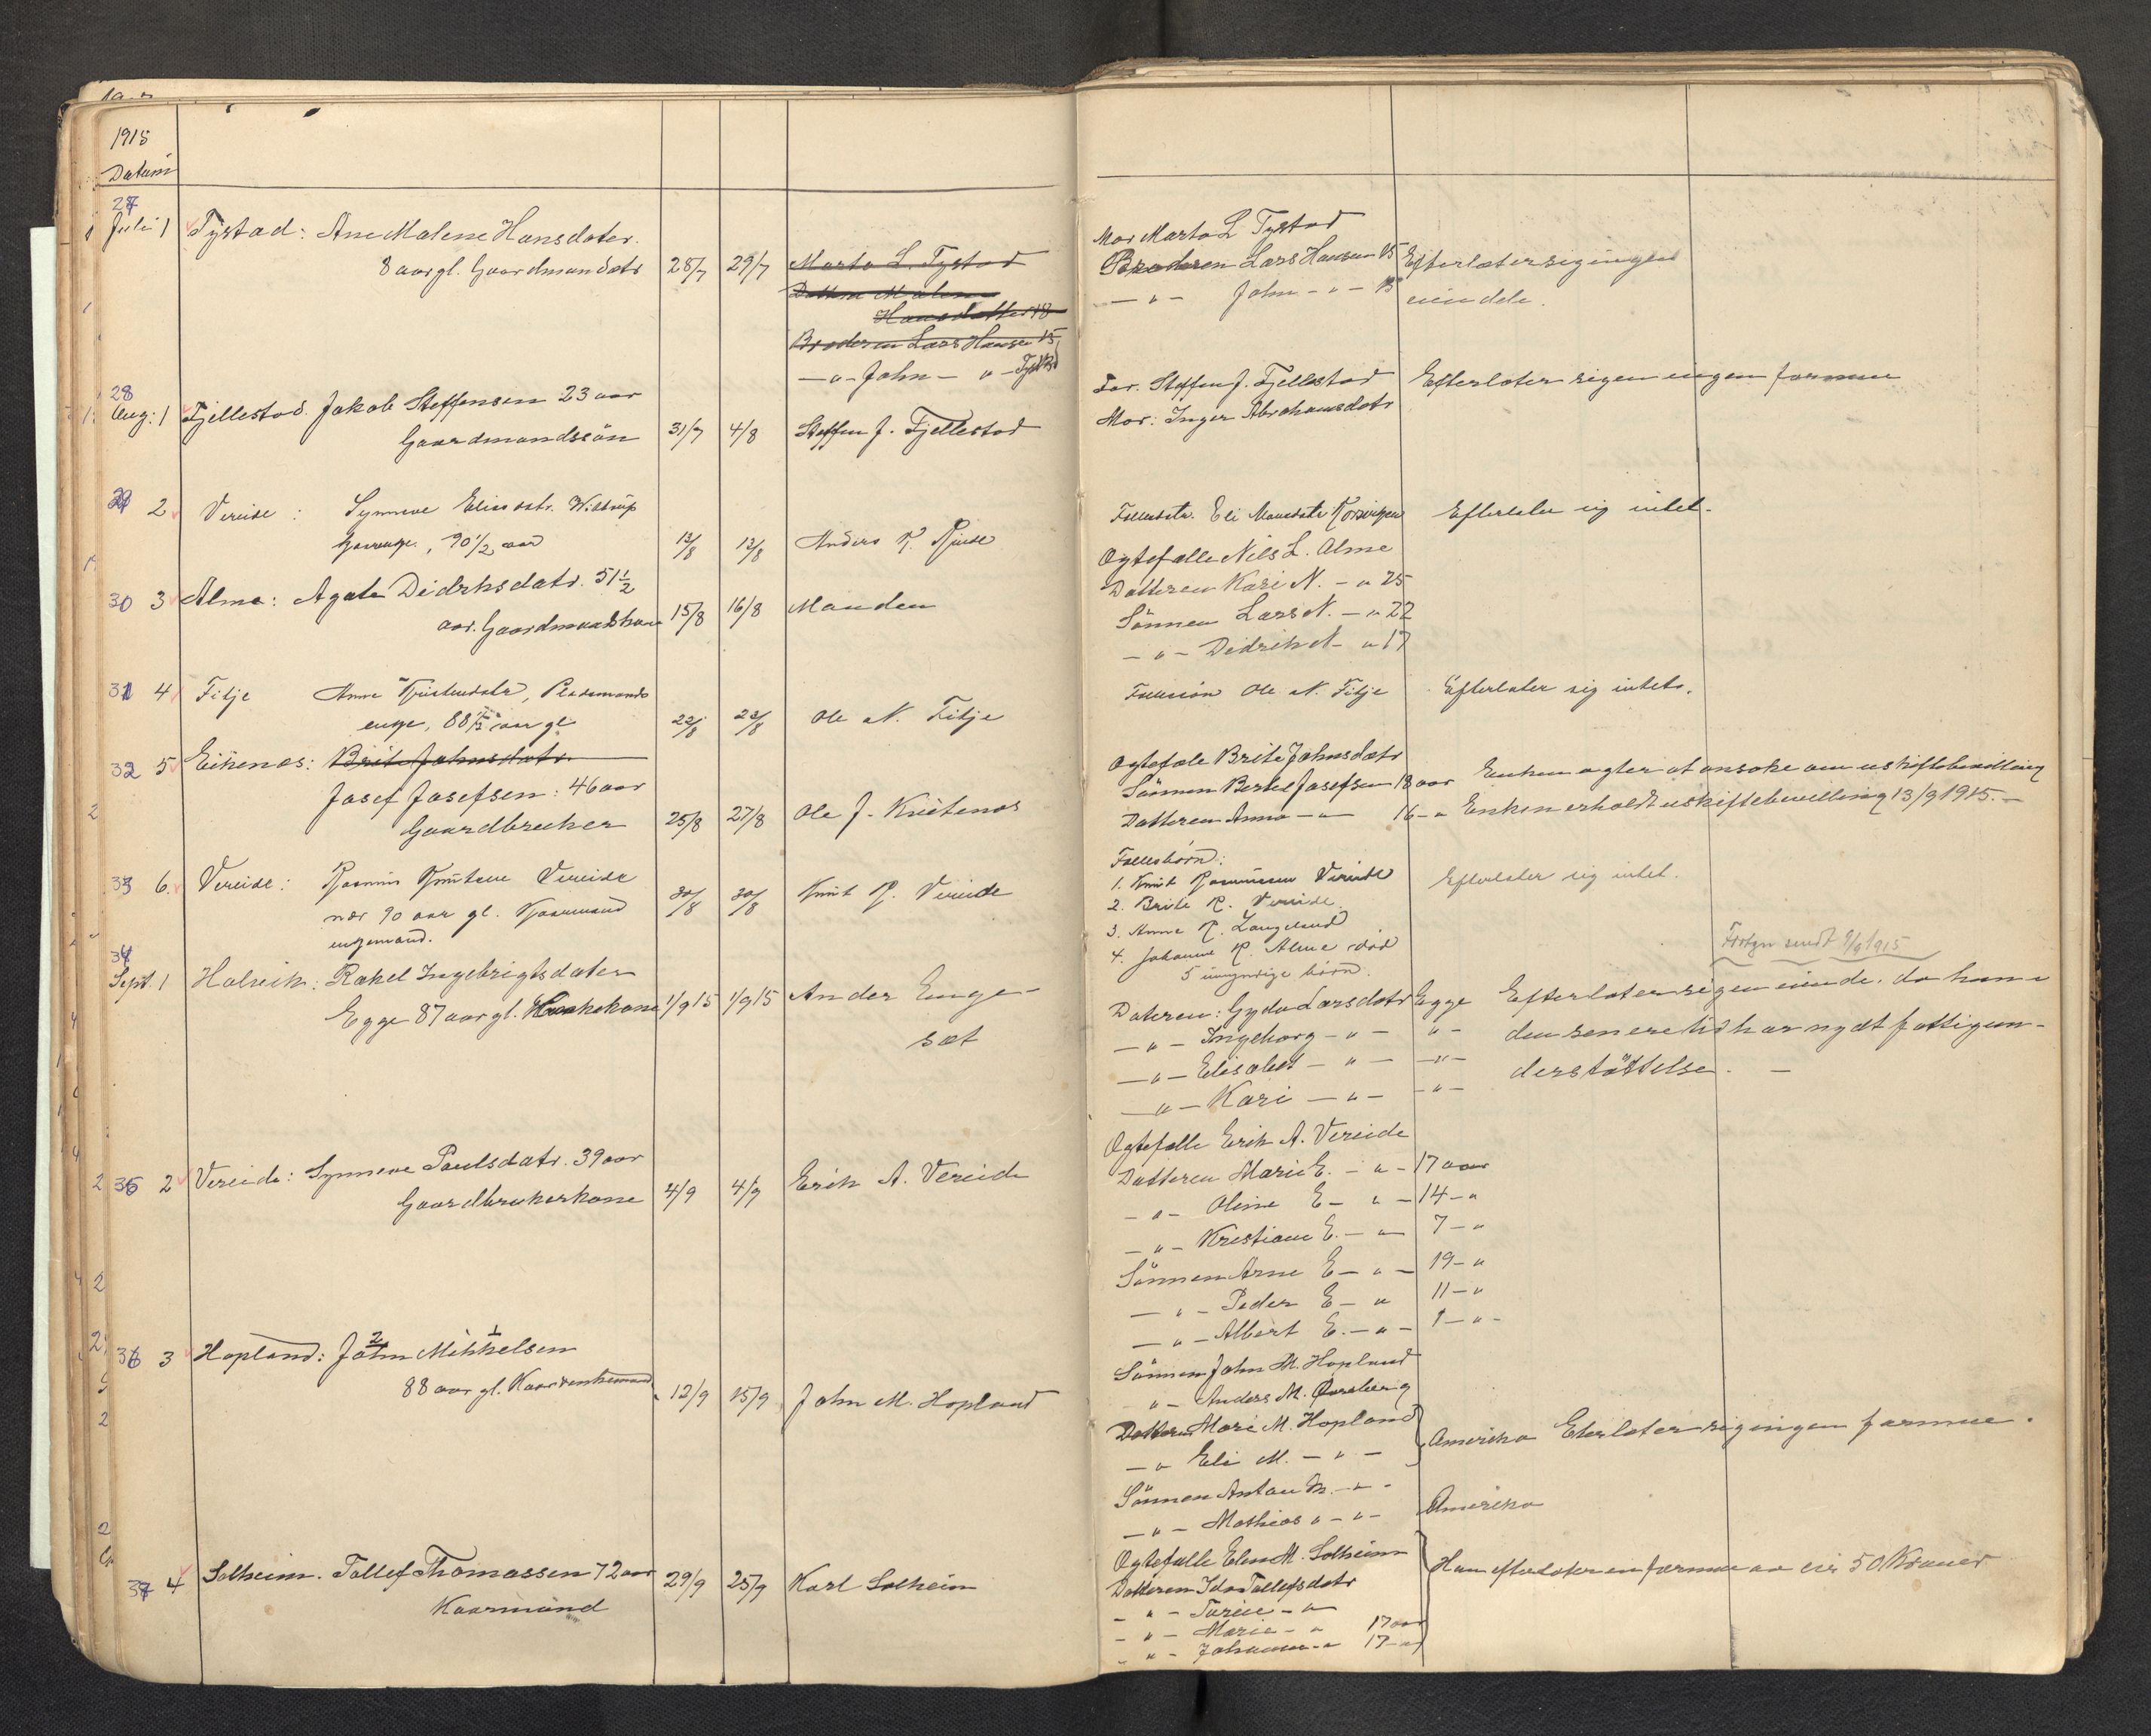 1915
Datum
27
Juli 1 Tystad: Ane Malene Hansdater.
8 aar gl. Gaardmandsdtr 28/7 29/7 Marta L. Tystad
Datteren Malene
Hansdatter 18
Broderen Lars Hansen 15
— " — John — " — Tystad
Mor Marta L Tystad
Broderen Lars Hansen 15 Efterlater sig ingen
— " — John — " — 13 eiendele.
28
Aug: 1 Fjellestad. Jakob Steffensen 23 aar
Gaardmandssön 31/7 4/8 Steffen J. Fjellestad
Far. Steffen J. Fjellestad Efterlater sigen ingen formue
Mor: Inger Abrahamsdatr
29 2 Vereide: Synneve Eliasdatr.
90 1/2 aar 12/8 12/8 Anders R.
Eli
Efterlater sig intet.
30 3 Alme: Agate Didriksdatr. 51 1/2
aar. Gaardmandskone 15/8 16/8 Manden
Ogtefælle Nils L. Alme
Datteren Kari N. — " 25
Sönnen Lars N. — " 22
— " — Didrik N — " 17
31 4 Fitje Anne
enke, 88 aar gl 22/8 22/8 Ole N. Fitje
Ole N. Fitje Efterlater sig intet.
32 5 Eikenes: Brite Johnsdatr.
Josef Josefsen: 46 aar
Gaardbruker 25/8 27/8 Ole J. Kvitenes
Ogtefæle Brite Johnsdatr
Sönnen Bertel Josefsen 18 aar Enken agter at ansøke om uskiftebevilling
Datteren Anna — " — 16 — " Enken erholdt uskiftebevilling 13/9 1915. —
33 6. Vereide: Rasmus Knutsen Vereide
nær 90 aar gl. Kaarmand
enkemand. 30/8 30/8 Knut R. Vereide
Fællesbörn:
1. Knut Rasmussen Vereide Efterlater sig intet.
2. Brite R. Vereide
3. Anne R. Langeland
4. Johanne R. Alme död
5 umyndige børn.
34
Sept. 1 Holvik: Rakel Ingebrigtsdater
Egge 87 aar gl. 1/9 15 1/9 15 Ander Enge-
sæt
sendt 9/9 1915
Dateren: Gyda Larsdatr Egge Efterlater sigen eiende, da hun i
— " — Ingeborg — " — " — den senere tid har nydt fattigun-
— " — Elisabet — " — — " — derstöttelse. —
— " — Kari — " — — " —
35 2 Vereide: Synneve Paulsdatr. 39 aar
Gaardbrukerkone 4/9 4/9 Erik A. Vereide
Ogtefælle Erik A. Vereide
Datteren Marie E. — " — 17 aar
— " — Oline E — " — 14 — "
— " — Kristiane E. — " — 7 — "
Sönnen Arne E — " — 19 — "
— " — Peder E — " 11 — "
— " — Albert E. — " — 1 — " —
36 3 Hopland: John 2 Mikkelsen 1
88 aar gl. 12/9 15/9 John M. Hopland
Sönnen John M. Hopland
— " — Anders M.
Datteren Mari M. Hopland Amerika Eterlater sig ingen formue.
— " Eli M. — " —
Sönnen Anton M. — " —
— " — Mathias " — " — Amerika
37 4 Solheim. Tollef Thomassen 72 aar
Kaarmand 29/9 25/9 Karl Solheim
Ogtefælle Elen M. Solheim Han efterlater en formue av cir 50 Kroner
Datteren Ida Tollefsdatr
— " — — "
— " — Marie — " 17 aar
— " — Johanne — " 17 — "